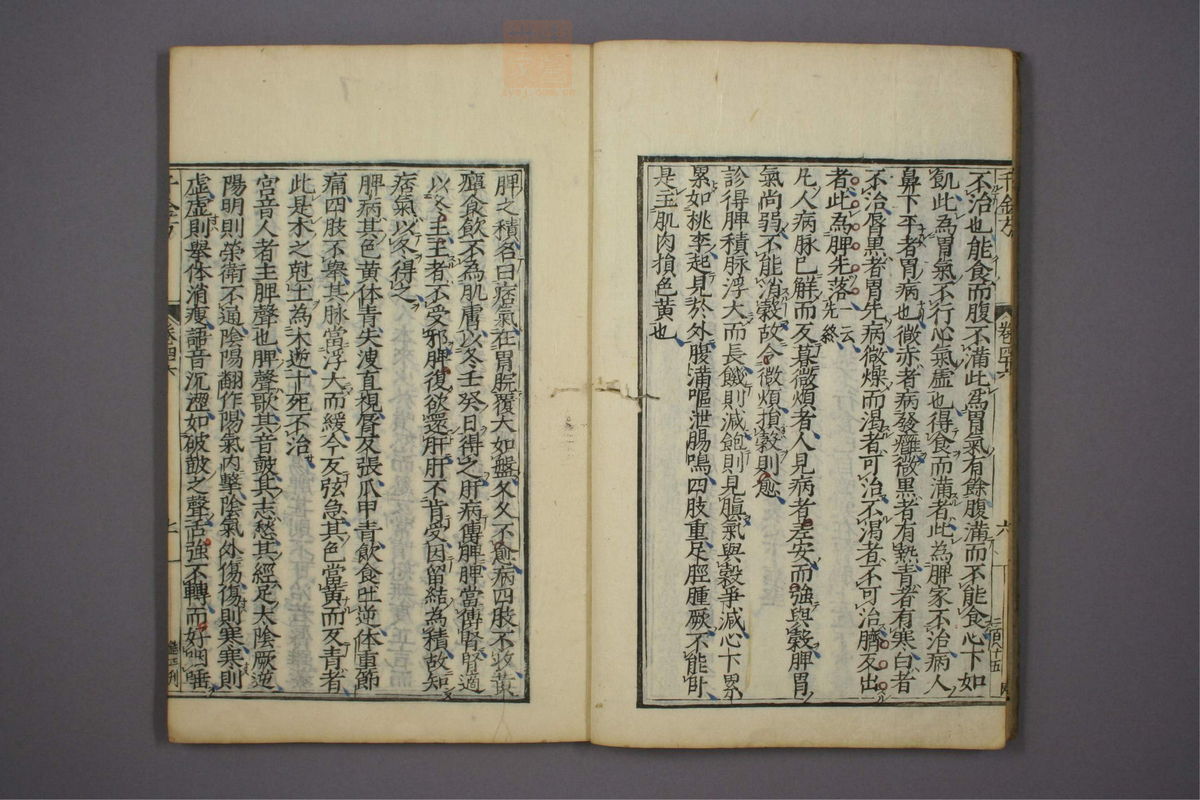 不治也能食而腹不滿此為胃氣有餘腹滿而不能食心下如
飢此為胃氣不行心氣虛也得食而滿者此為脾家不治病人
鼻下平者胃病也微赤者病發癰微黑者有熱青者有寒白者
不治脣黑者胃先病微燥而渴者可治不渴者不可治臍反出
者此為脾先落一云先終
凡人病脉已解而反暮微煩者人見病者差安而強與穀脾胃
氣尚弱不能消穀故令微煩損穀則愈
診得脾積脉浮大而長飢則減飽則見䐜氣與穀爭減心下累
累如桃李起見於外腹滿嘔泄腸鳴四肢重足脛腫厥不能臥
是主肌肉損色黃也
千金方
卷四十六
六
脾之積名曰痞氣在胃脘覆大如盤久久不愈病四肢不收黃
癉食飲不為肌膚以冬壬癸日得之肝病傳脾脾當傳腎腎適
以冬王王者不受邪脾復欲還肝肝不肯受因留結為積故知
痞氣以冬得之
脾病其色黃体青失溲直視脣反張爪甲青飲食吐逆体重節
痛四肢不舉其脉當浮大而緩今反弦急其色當黃而反青者
此是木之尅土為大逆十死不治
宮音人者主脾聲也脾聲歌其音皷其志愁其經足太陰厥逆
陽明則榮衛不通陰陽翻作陽氣內擊陰氣外傷傷則寒寒則
虛虛則舉体消瘦語音沉澀如破皷之聲舌強不轉而好咽唾
千金方
卷四十六
七